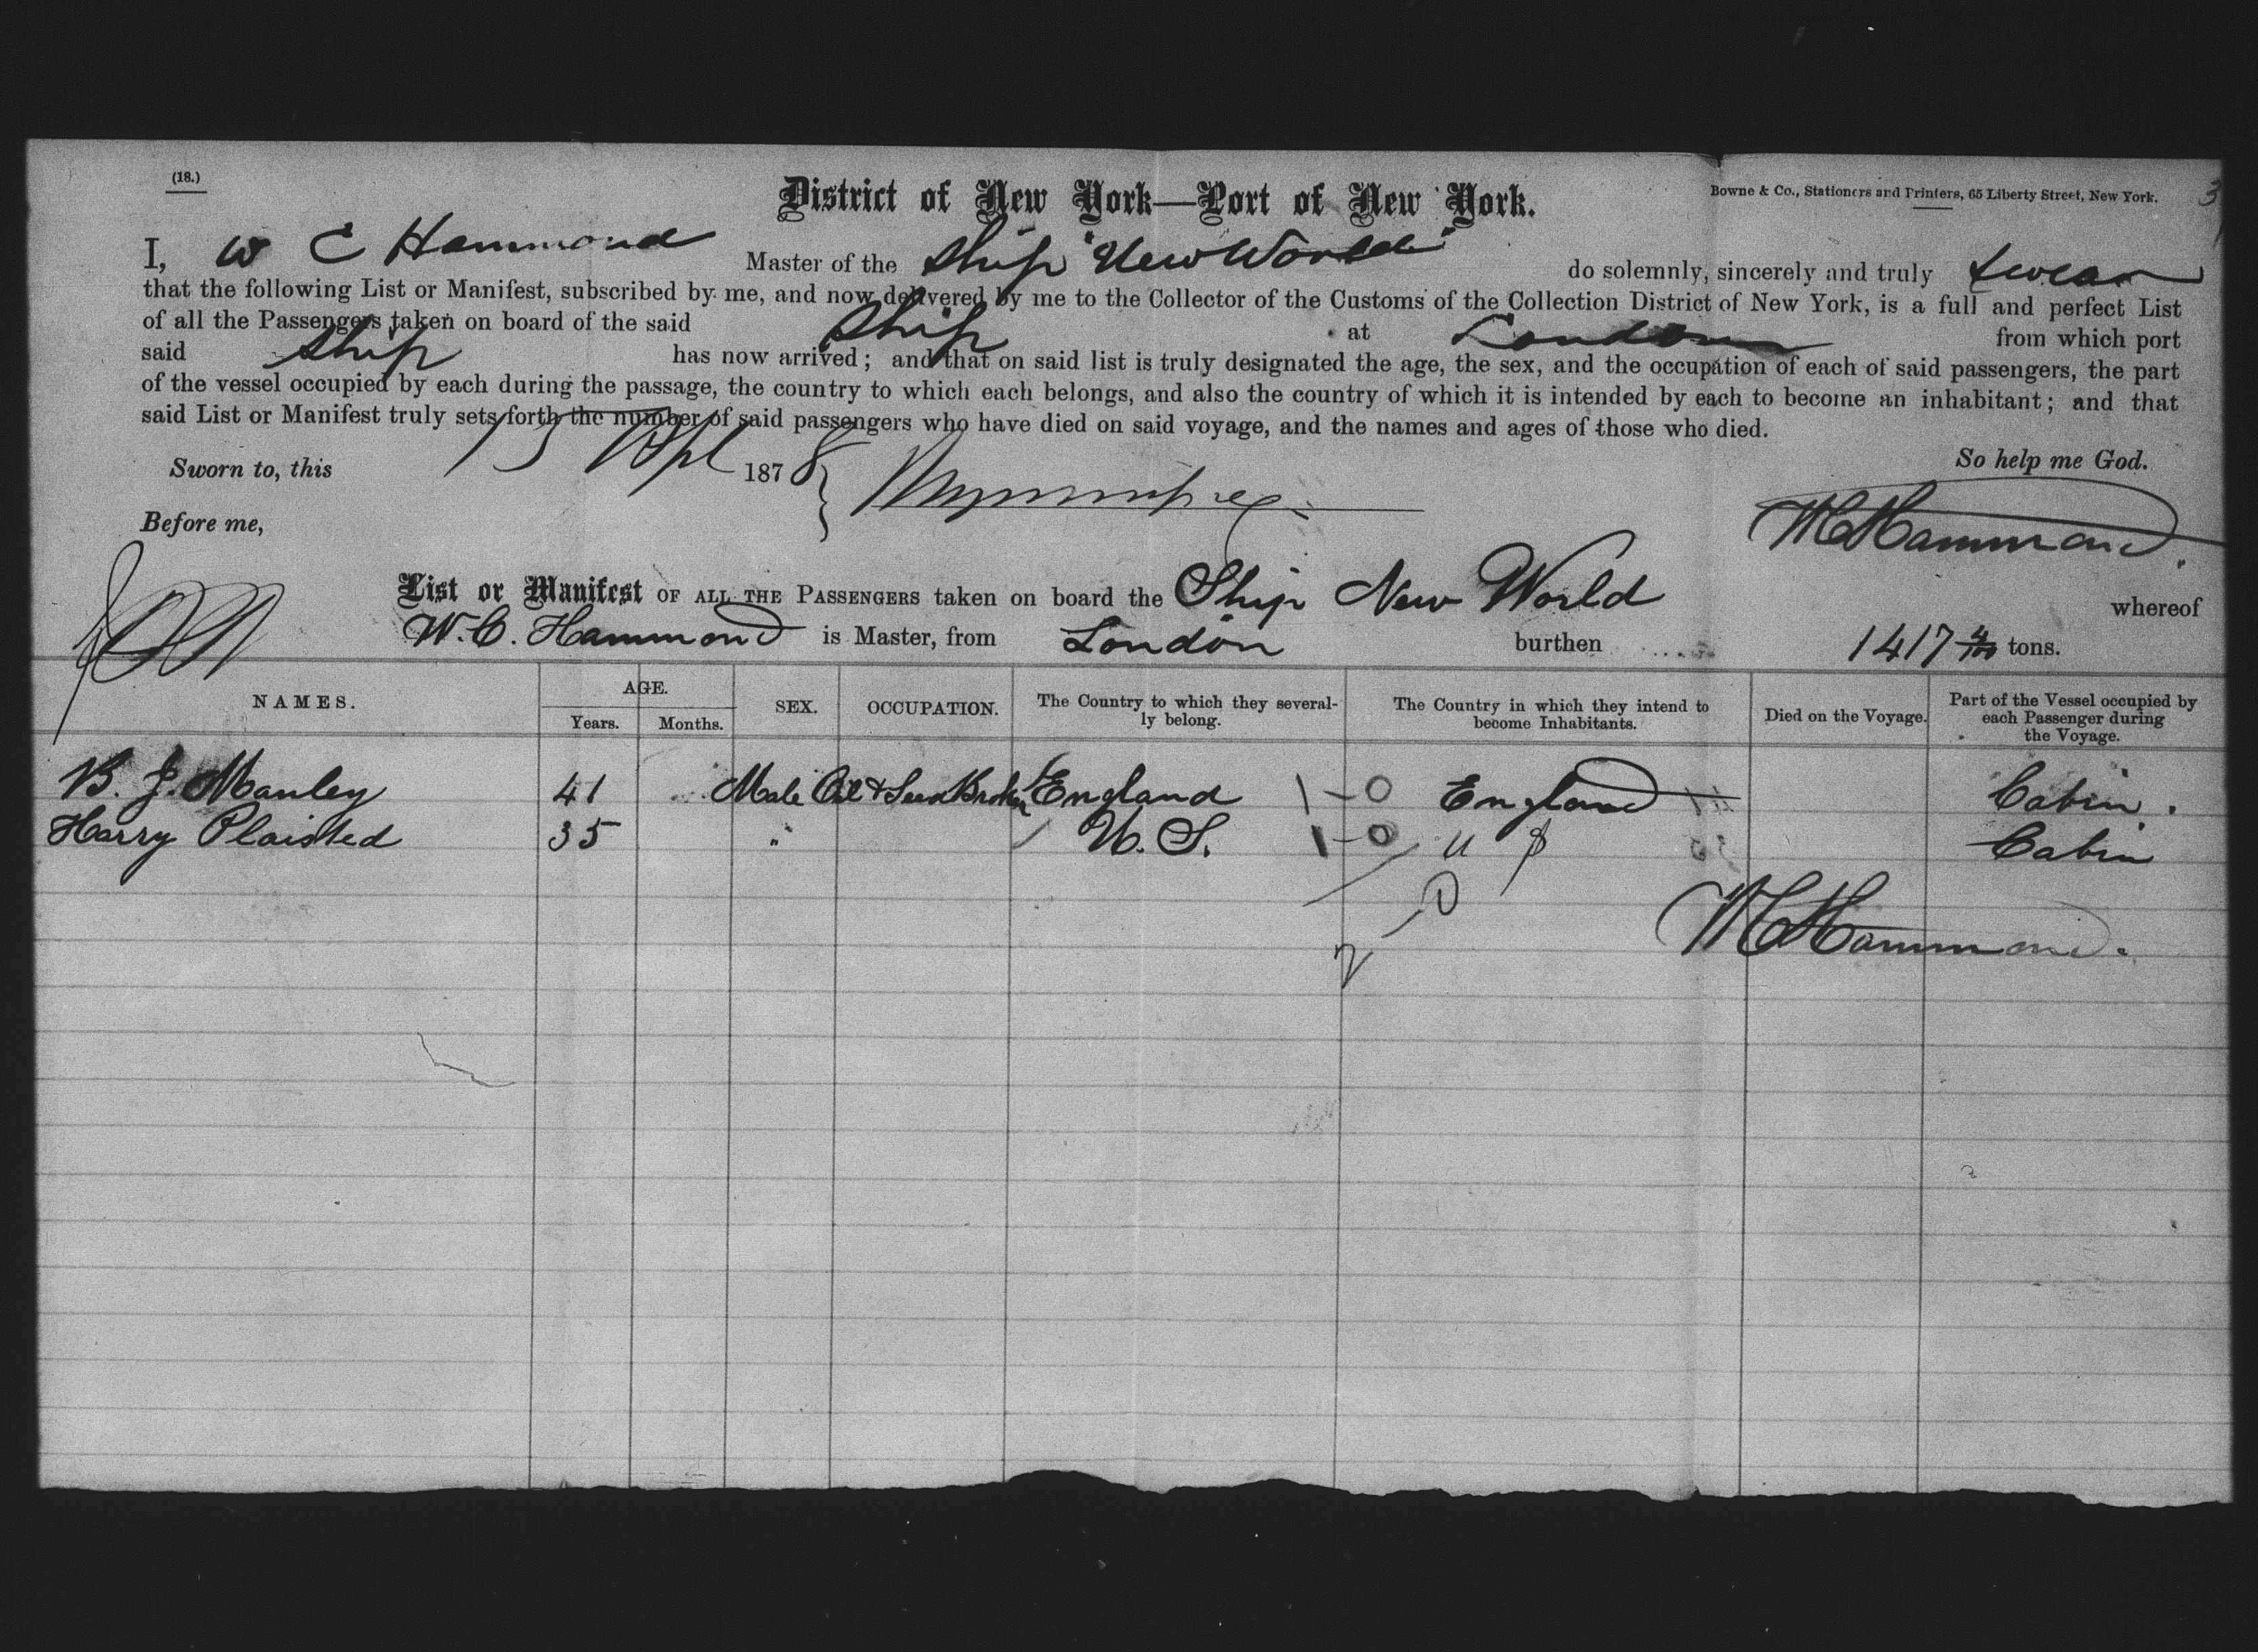 (18.)
District of New York—Port of New York.
Bowne & Co., Stationers and Printers, 65 Liberty Street, New York.
3
I, W C Hammond Master of the Ship "New World" do solemnly, sincerely and truly swear
that the following List or Manifest, subscribed by me, and now delivered by me to the Collector of the Customs of the Collection District of New York, is a full and perfect List
of all the Passengers taken on board of the said Ship at London from which port
said Ship has now arrived; and that on said list is truly designated the age, the sex, and the occupation of each of said passengers, the part
of the vessel occupied by each during the passage, the country to which each belongs, and also the country of which it is intended by each to become an inhabitant; and that
said List or Manifest truly sets forth the number of said passengers who have died on said voyage, and the names and ages of those who died.
Sworn to, this 13 Apl 1878 So help me God.
Before me, WC Hammond
List or Manifest OF ALL THE PASSENGERS taken on board the Ship New World whereof
W. C. Hammond is Master, from London burthen 1417 4/100 tons.
NAMES. AGE. Years. Months. SEX. OCCUPATION. The Country to which they severally belong. The Country in which they intend to become Inhabitants. Died on the Voyage. Part of the Vessel occupied by each Passenger during the Voyage.
B. J. Manley 41 Male Oil & Seed Broker England 1-0 England Cabin.
Harry Plaisted 35 " U. S. 1-0 U S Cabin
2-0
WC Hammond.